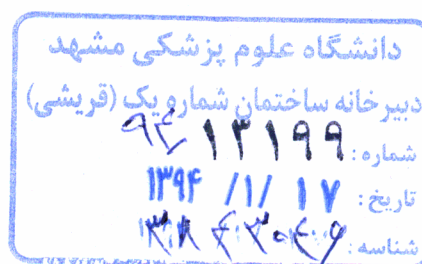 دانشگاه علوم پزشکی مشهد
دبیرخانه ساختمان شماره یک (قریشی)
شماره: ۹۴/ ۱۳۱۹۹
تاریخ: ۱۷ /۱/ ۱۳۹۴
شناسه: